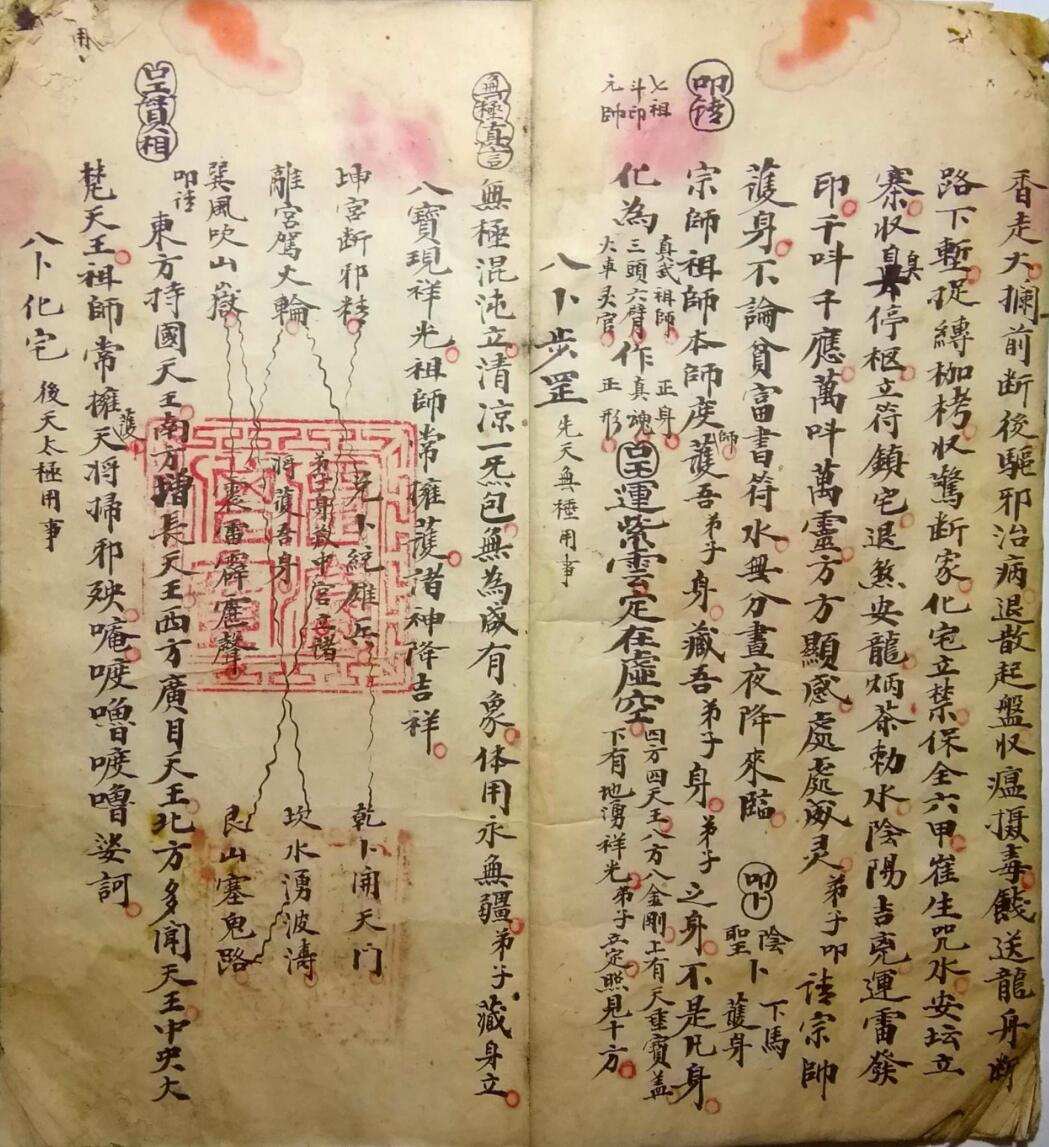 香走大擱前断後驅邪治病退散起盤収瘟摄毒餞送龍舟断
路下塹捉縛枷栲収驚断家化宅立禁保全六甲崔生咒水安坛立
寨収真停柩立符鎮宅退煞安龍炳茶勅水陰陽吉兇運雷發
印千呌千應萬呌萬靈方方顯感處處威灵弟子叩請宗師
護身不論貧富書符水無分晝夜降來臨叩卜陰聖卜下馬護身
叩請七祖斗印元帥宗師祖師本師度師護吾弟子身藏吾弟子身弟子之身不是凡身
化為真武祖師三頭六臂火車灵官作正身真魂正形
運紫雲定在虛空四方四天王八方八金剛上有天垂寶盖下有地湧祥光弟子立定照見十方
八卜步罡先天無極用事
無極真言無極混沌立清凉一炁包無為咸有象体用永無疆弟子藏身立
八寶現祥光祖師常擁護諸神降吉祥
坤宮断邪精兌卜統雄兵乾卜開天门
離宮駕火輪弟子身藏中宮立諸將護吾身坎水湧波濤
巽風吹山嶽震雷霹靂聲艮山塞鬼路
叩請東方持國天王南方增長天王西方廣目天王北方多聞天王中央大
梵天王祖師常擁護天將掃邪殃唵唛嚕唛嚕娑訶
八卜化宅後天太極用事
用